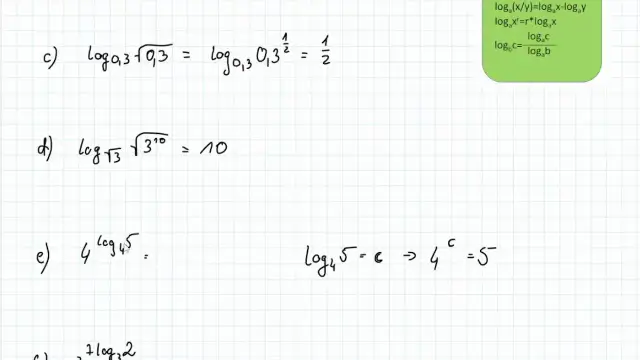 logₐ(x/y)=logₐx-logₐy
logₐxʳ=r*logₐx
log_b c= logₐc / logₐb
c) log_{0,3} √0,3 = log_{0,3} 0,3^{1/2} = 1/2
d) log_{√3} √3¹⁰ = 10
e) 4^{log₄5} = log₄5 = c → 4^c = 5
7log₃2